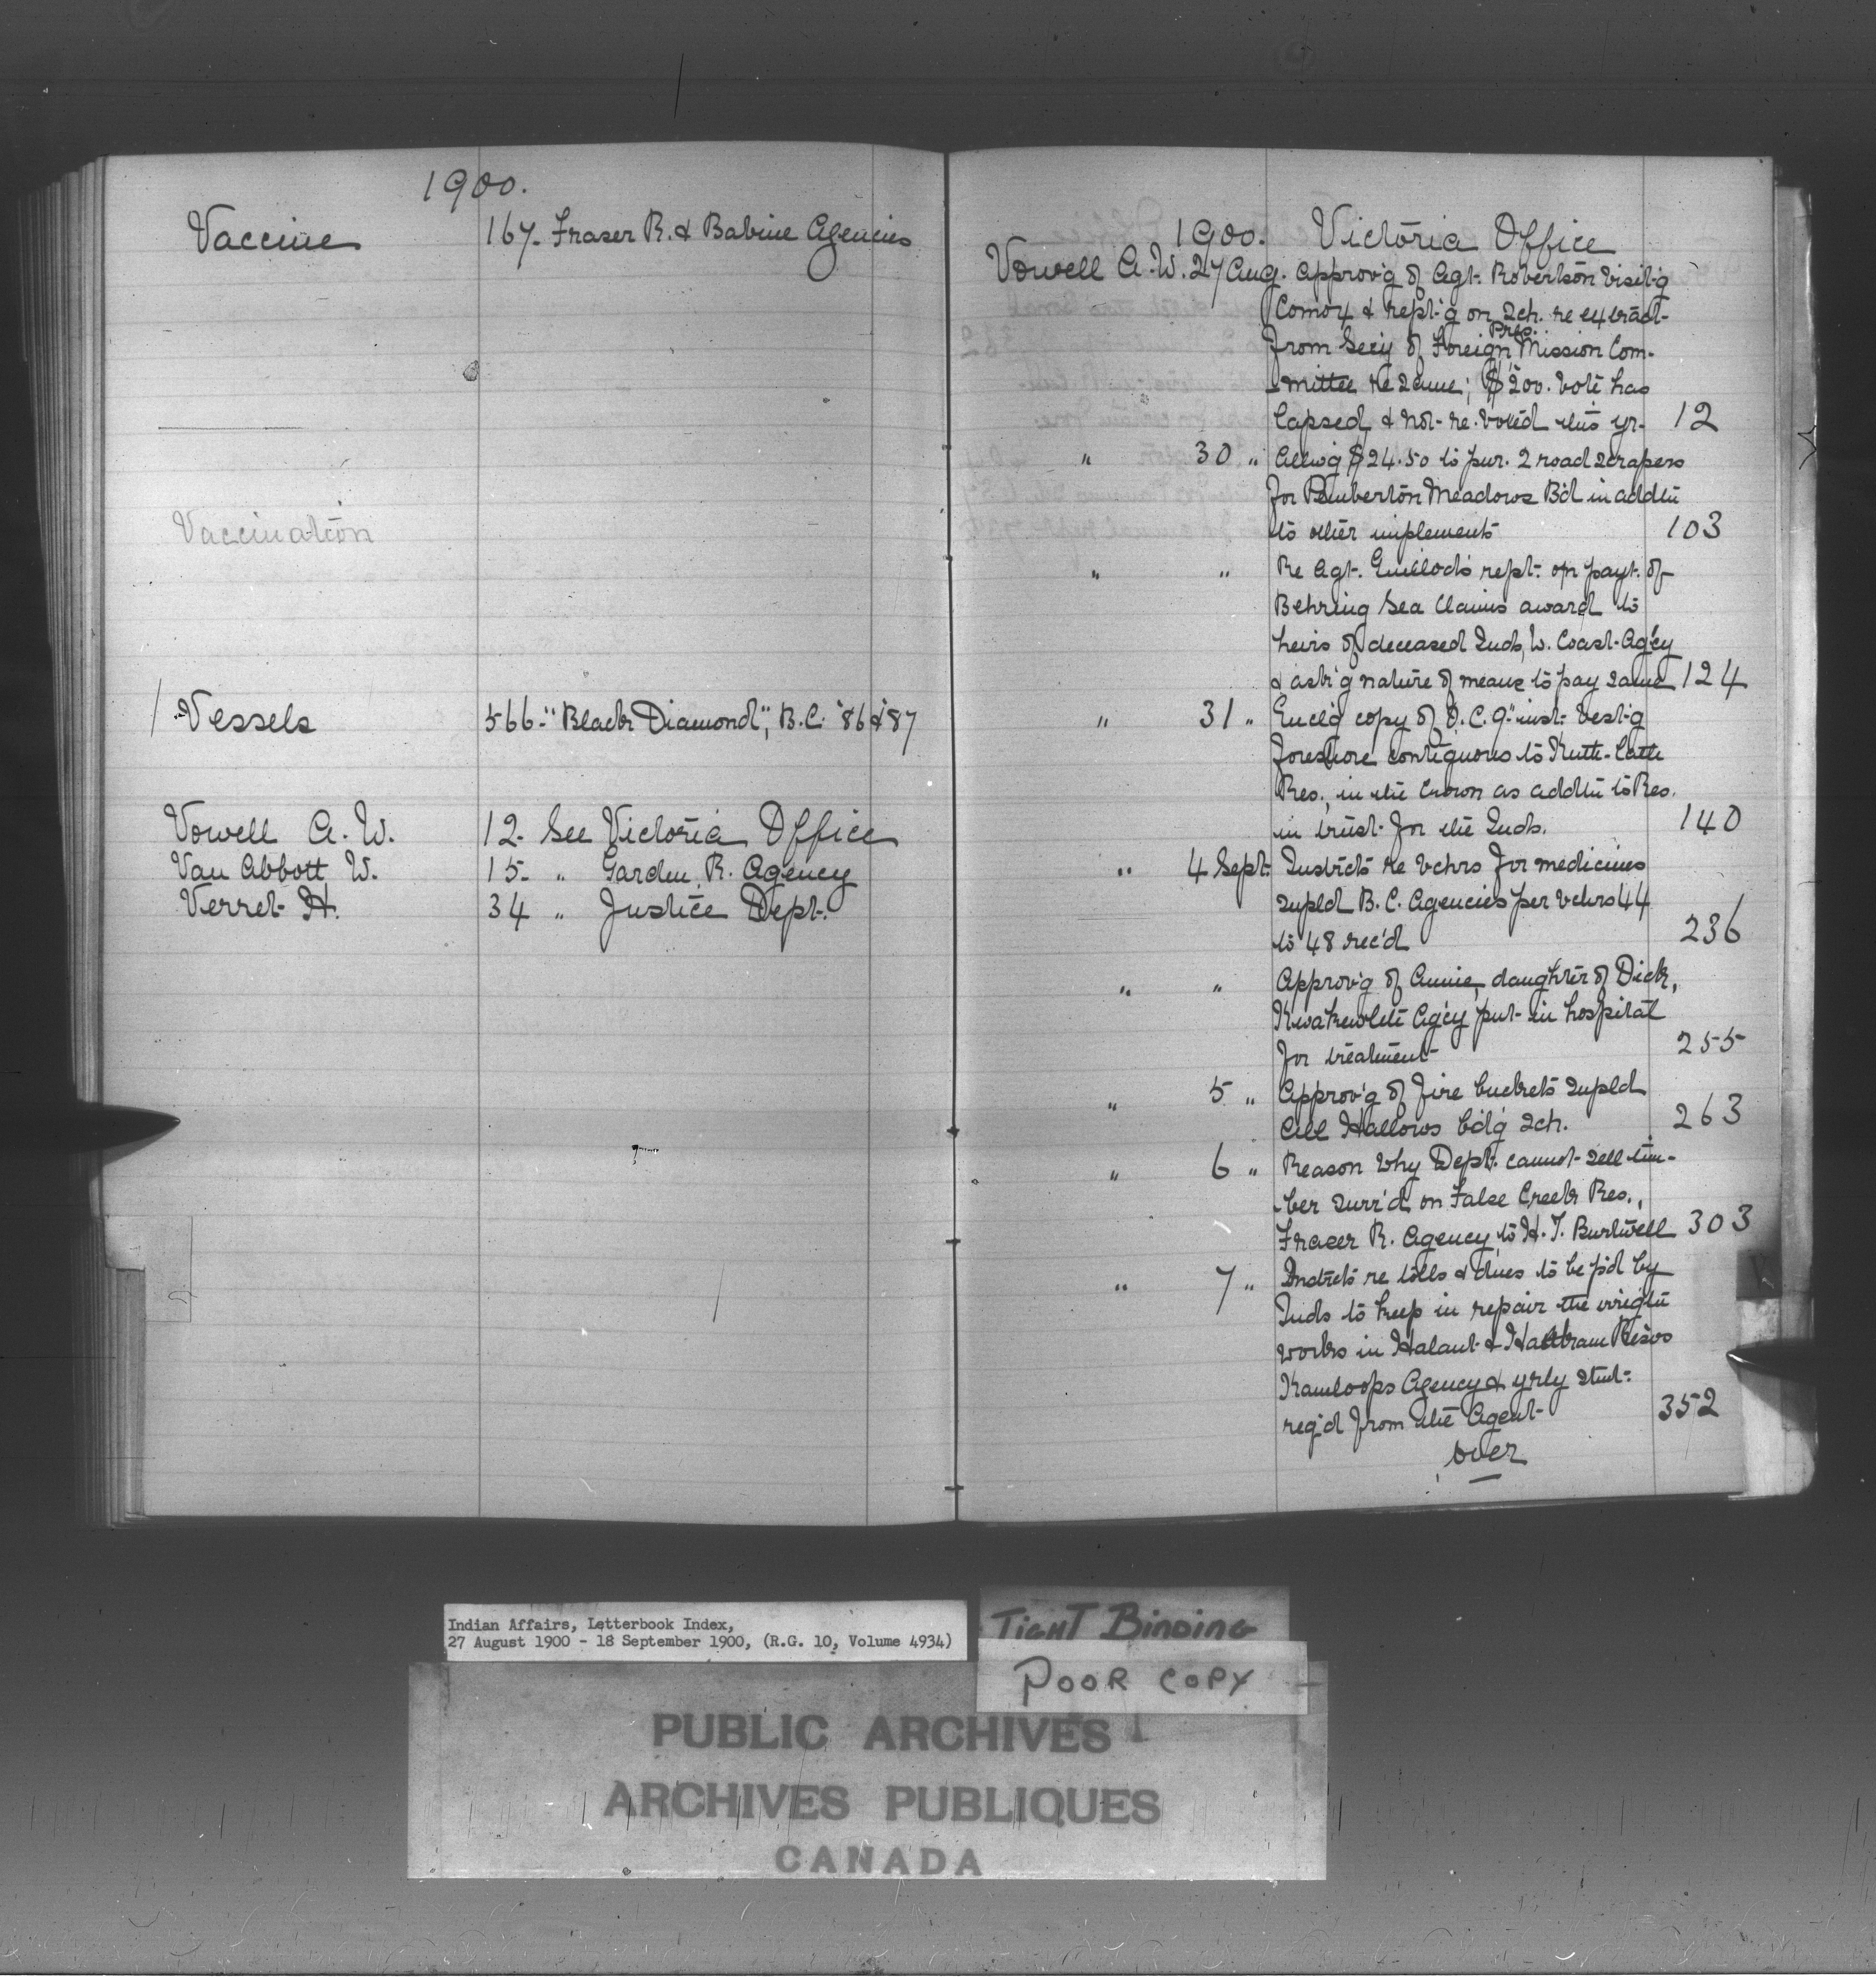 1900.
Vaccine 167- Fraser R. & Babine Agencies
Vaccination
Vessels 566- "Black Diamond", B.C. '86 & '87
Vowell A. W. 12- See Victoria Office
Van Abbott W. 15- " Garden R. Agency
Verret H. 34 " Justice Dept.
1900. Victoria Office
Vowell A. W. 27 Aug. Approv'g of Agt. Robertson visit'g
Comox & rept'g on Sch. re extract
from Secy of Foreign Pres. Mission Com-
-mittee re same; $200. vote has
lapsed & not re-voted this yr. 12
" 30 " Allw'g $24.50 to pur. 2 road scrapers
for Pemberton Meadows B'd in addtn
to other implements 103
" " Re Agt. Guillod's rept. on payt. of
Behring Sea Claims award to
heirs of deceased Inds, W. Coast Ag'cy
& ask'g nature of means to pay same 124
" 31 " Encl'g copy of O.C. 9" inst. vest'g
foreshore contiguous to
Res., in the Crown as addtn to Res.
in trust for the Inds. 140
" 4 Sept. Instrcts re vchrs for medicines
supld B.C. Agencies per vchrs 44
to 48 rec'd 236
" " Approv'g of Annie, daughter of Dick,
Kwakewlth Ag'cy put in hospital
for treatment 255
" 5 " Approv'g of fire buckets supld
All Hallows b'd'g Sch. 263
" 6 " Reason why Dept. cannot sell tim-
-ber surr'd on False Creek Res.,
Fraser R. Agency, to H. T. Burtwell 303
" 7 " Instrcts re tolls & dues to be p'd by
Inds to keep in repair the irrigtn
works in Halaut & Resvs
Kamloops Agency & yrly stmt.
req'd from the Agent 352
over
Indian Affairs, Letterbook Index,
27 August 1900 - 18 September 1900, (R.G. 10, Volume 4934)
TIGHT BINDING
POOR COPY
PUBLIC ARCHIVES
ARCHIVES PUBLIQUES
CANADA